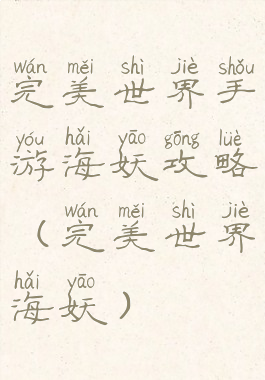 wán měi shì jiè shǒu
完美世界手
yóu hǎi yāo gōng lüè
游海妖攻略
wán měi shì jiè
（完美世界
hǎi yāo
海妖）